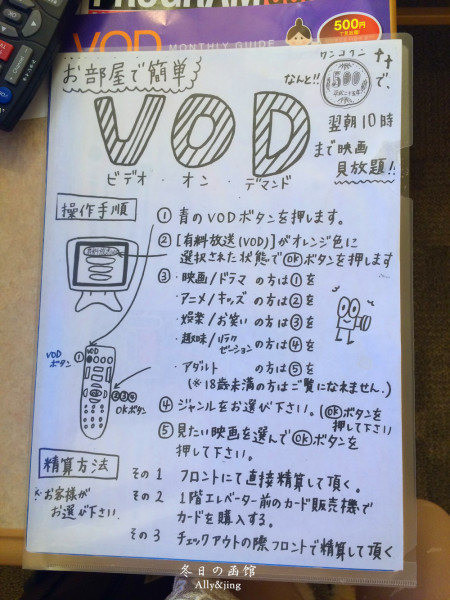 PROGRAM
VOD MONTHLY GUIDE
500円
お部屋で簡単
ワンコイン
なんと!! 500 で、
翌朝10時
まで映画
見放題!!
VOD
ビデオ・オン・デマンド
操作手順
① 青のVODボタンを押します。
② [有料放送(VOD)]がオレンジ色に
選択された状態でOKボタンを押します
③ ・映画/ドラマ の方は①を
・アニメ/キッズ の方は②を
・娯楽/お笑い の方は③を
・趣味/リラクゼーション の方は④を
・アダルト の方は⑤を
(※18歳未満の方はご覧になれません.)
VODボタン ①
OKボタン
④ ジャンルをお選び下さい。(OKボタンを
押して下さい)
⑤ 見たい映画を選んでOKボタンを
押して下さい。
精算方法
※お客様が
お選び下さい
その1 フロントにて直接精算して頂く。
その2 1階エレベーター前のカード販売機で
カードを購入する。
その3 チェックアウトの際フロントで精算して頂く
冬日の函馆
Ally&jing